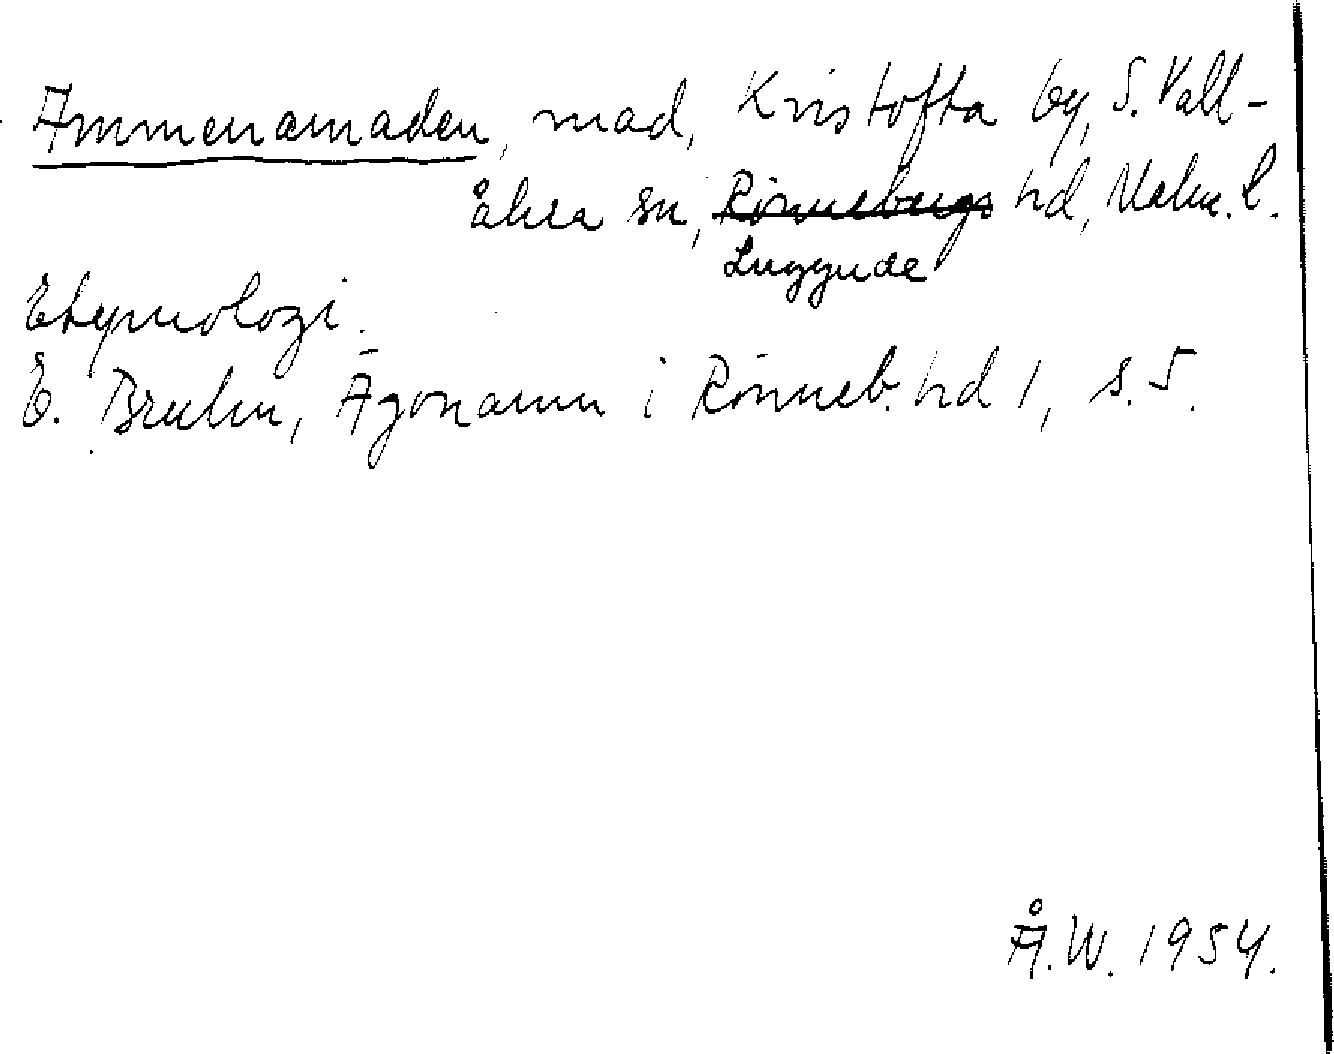 Ammenamaden, mad, Kristofta by, S. Vall-
åkra sn, Rönnebergs hd, Malm. l.
Luggude
Etymologi.
E. Bruhn, Ägonamn i Rönneb. hd 1, s. 5.
Å.W. 1954.